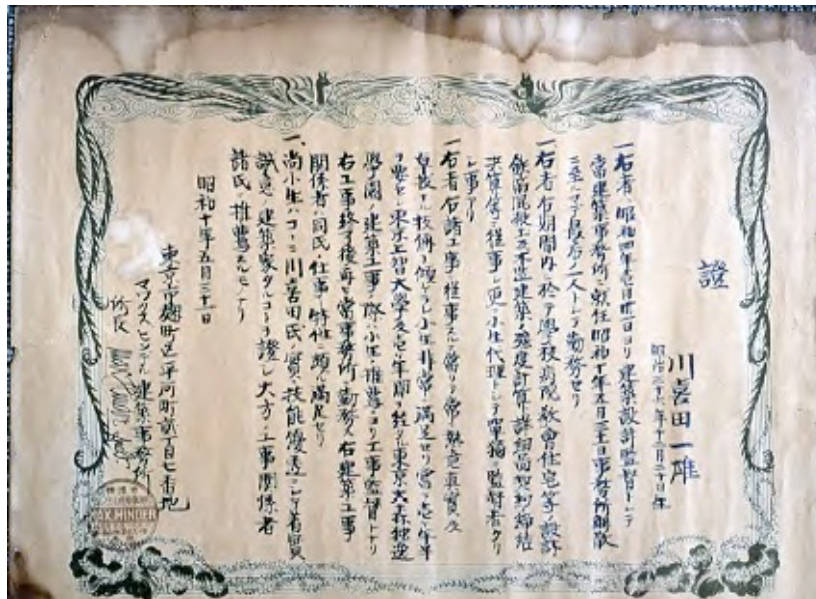 證
川喜田一雄
明治三十六年十二月二十日生
一右者昭和四年七月廿一日ヨリ建築設計監督トシテ
當建築事務所ニ就任昭和十年五月三十一日事務所解散
ニ至ルマデ段右ノ一人トシテ勤務セリ
一右者右期間内ニ於テ學校病院教會住宅等ノ設計
鉄筋混凝土及木造建築ノ強度計算詳細図契約締結
決算等ニ従事シ更ニ小生代理トシテ單獨ニ監督者タリ
シ事アリ
一右者右諸工事ニ従事スルニ當リテ常ニ熱意眞實及
卓越セル技倆ヲ傾ケラレ小生非常ニ満足セリ當ニ壱ヶ年半
ヲ要セシ東京上智大學及壱年間ヲ経タル東京大森独逸
學園ノ建築工事ノ際ハ小生ノ推薦ニヨリ工事監督トナリ
右工事終了後再ビ當事務所ニ勤務ス右建築工事
関係者ハ同氏ノ仕事ノ特性ニ頗ル満足セリ
一、尚小生ハコヽニ川喜田氏ノ實ニ技能優秀ニシテ着實
誠意ノ建築家タルコトヲ證シ大方ノ工事関係者
諸氏ニ推薦スルモノナリ
昭和十年五月三十一日
東京市麹町区平河町貳丁目七番地
マックスヒンデル建築事務所
所長
MAX HINDER